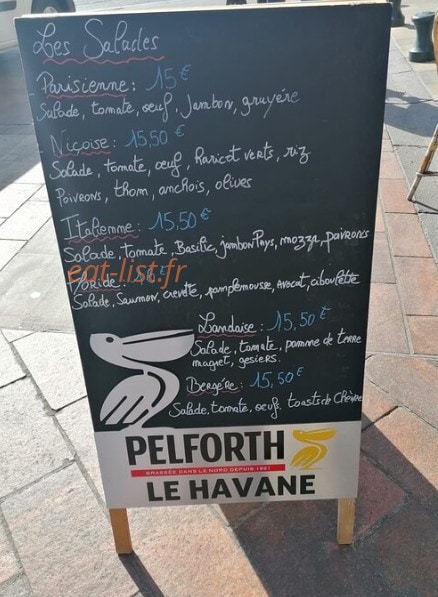 Les Salades
Parisienne : 15€
Salade, tomate, oeuf, Jambon, gruyére
Niçoise : 15,50€
Salade, Tomate, oeuf, Haricot verts, riz
Poivrons, thom, anchois, olives
Italienne : 15,50€
Salade, Tomate, Basilic, jambon Pays, mozza, poivrons
eat-list.fr
Salade, Saumon, crevette, pamplemousse, Avocat, ciboulette
Landaise : 15,50€
Salade, tomate, pomme de terre
magret, gesiers.
Bergère : 15,50€
Salade, tomate, oeufs, toasts de Chèvre
PELFORTH
BRASSÉE DANS LE NORD DEPUIS 1921
LE HAVANE